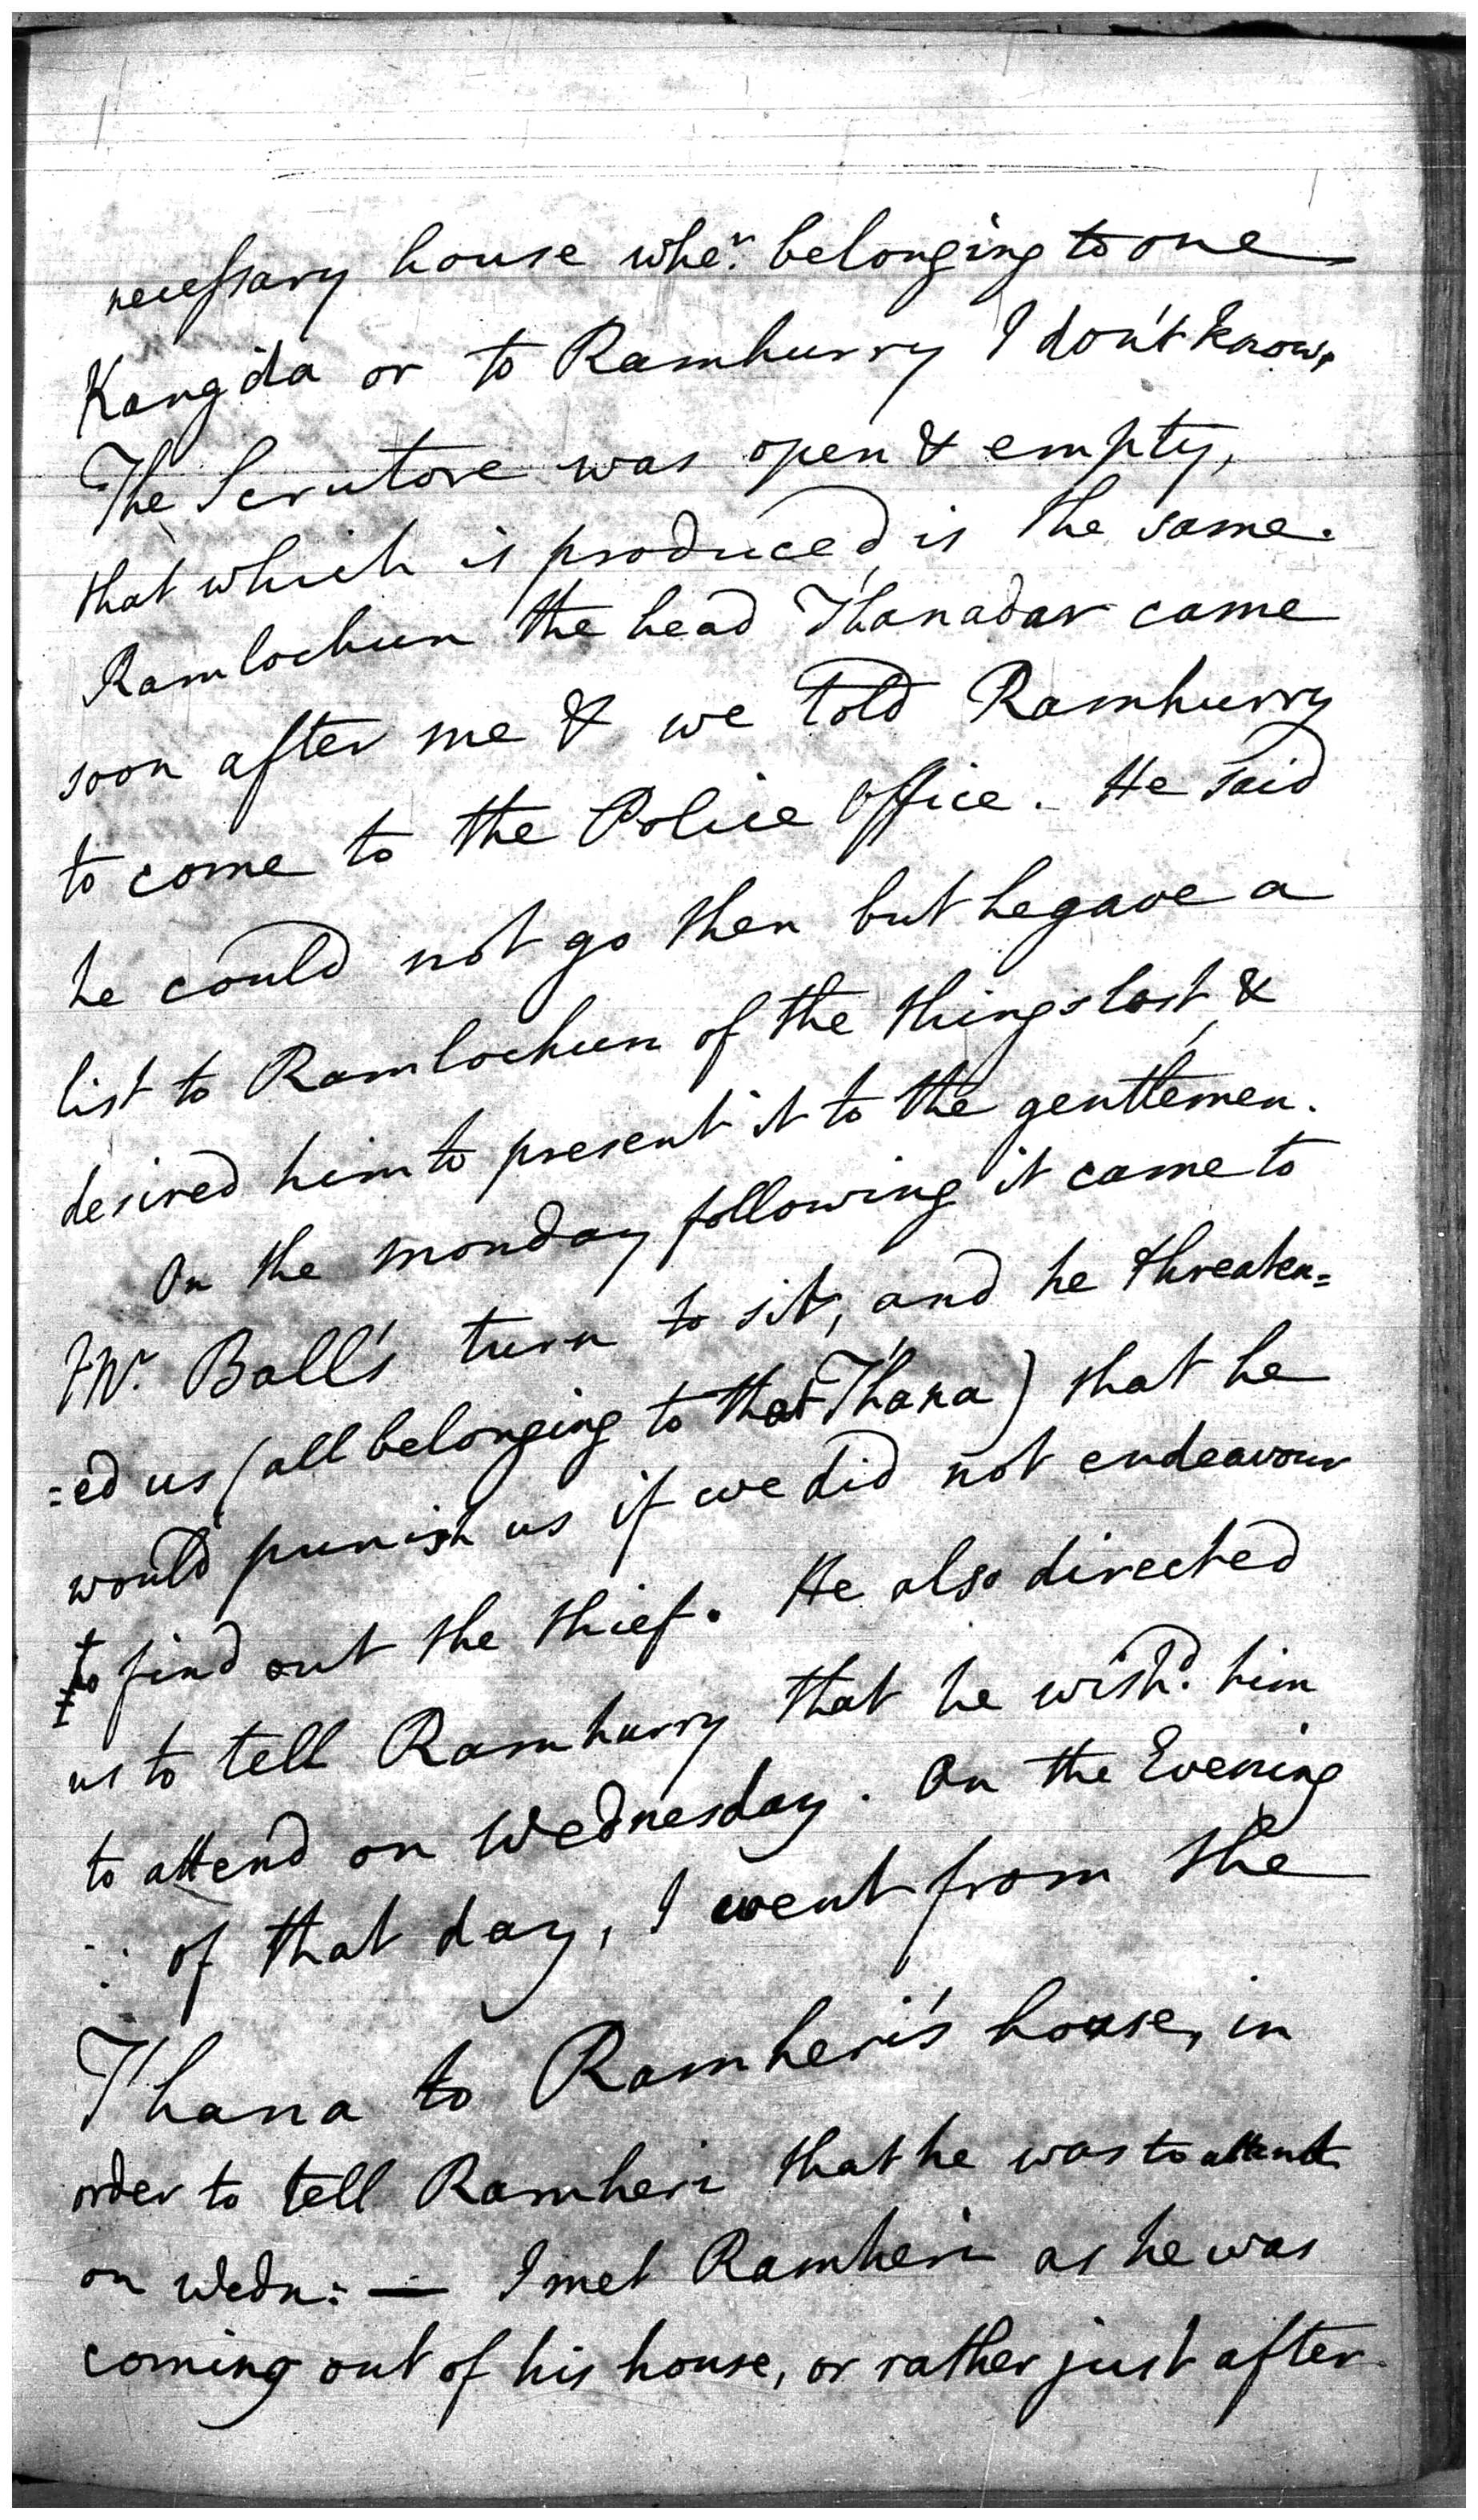 necessary house whe.r belonging to one
Kangda or to Ramhurry I don't know,
The Scrutore was open & empty,
that which is produced, is the same.
Ramlochun the head Thanadar came
soon after me & we told Ramhurry
to come to the Police office. He said
he could not go then but he gave a
list to Ramlochun of the things lost, &
desired him to present it to the gentlemen.
On the monday following it came to
Mr. Ball's turn to sit, and he threaten=
=ed us (all belonging to that Thana) that he
would punish us if we did not endeavour
to find out the thief. He also directed
us to tell Ramhurry that he wish'd him
to attend on Wednesday. On the Evening
of that day, I went from the
Thana to Ramheri's house, in
order to tell Ramheri that he was to attend
on Wedn: — I met Ramheri as he was
coming out of his house, or rather just after